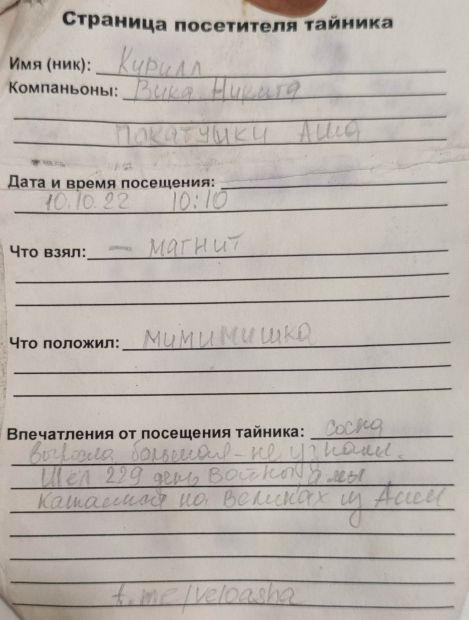 Страница посетителя тайника
Имя (ник): Кирилл
Компаньоны: Вика Никита
Покатушки Аша
Дата и время посещения:
10.10.22 10:10
Что взял: — магнит
Что положил: мимимишка
Впечатления от посещения тайника: сосна
выросла большая - не узнали.
Шёл 229 день войны а мы
катаемся на великах из Аши
t.me/veloasha